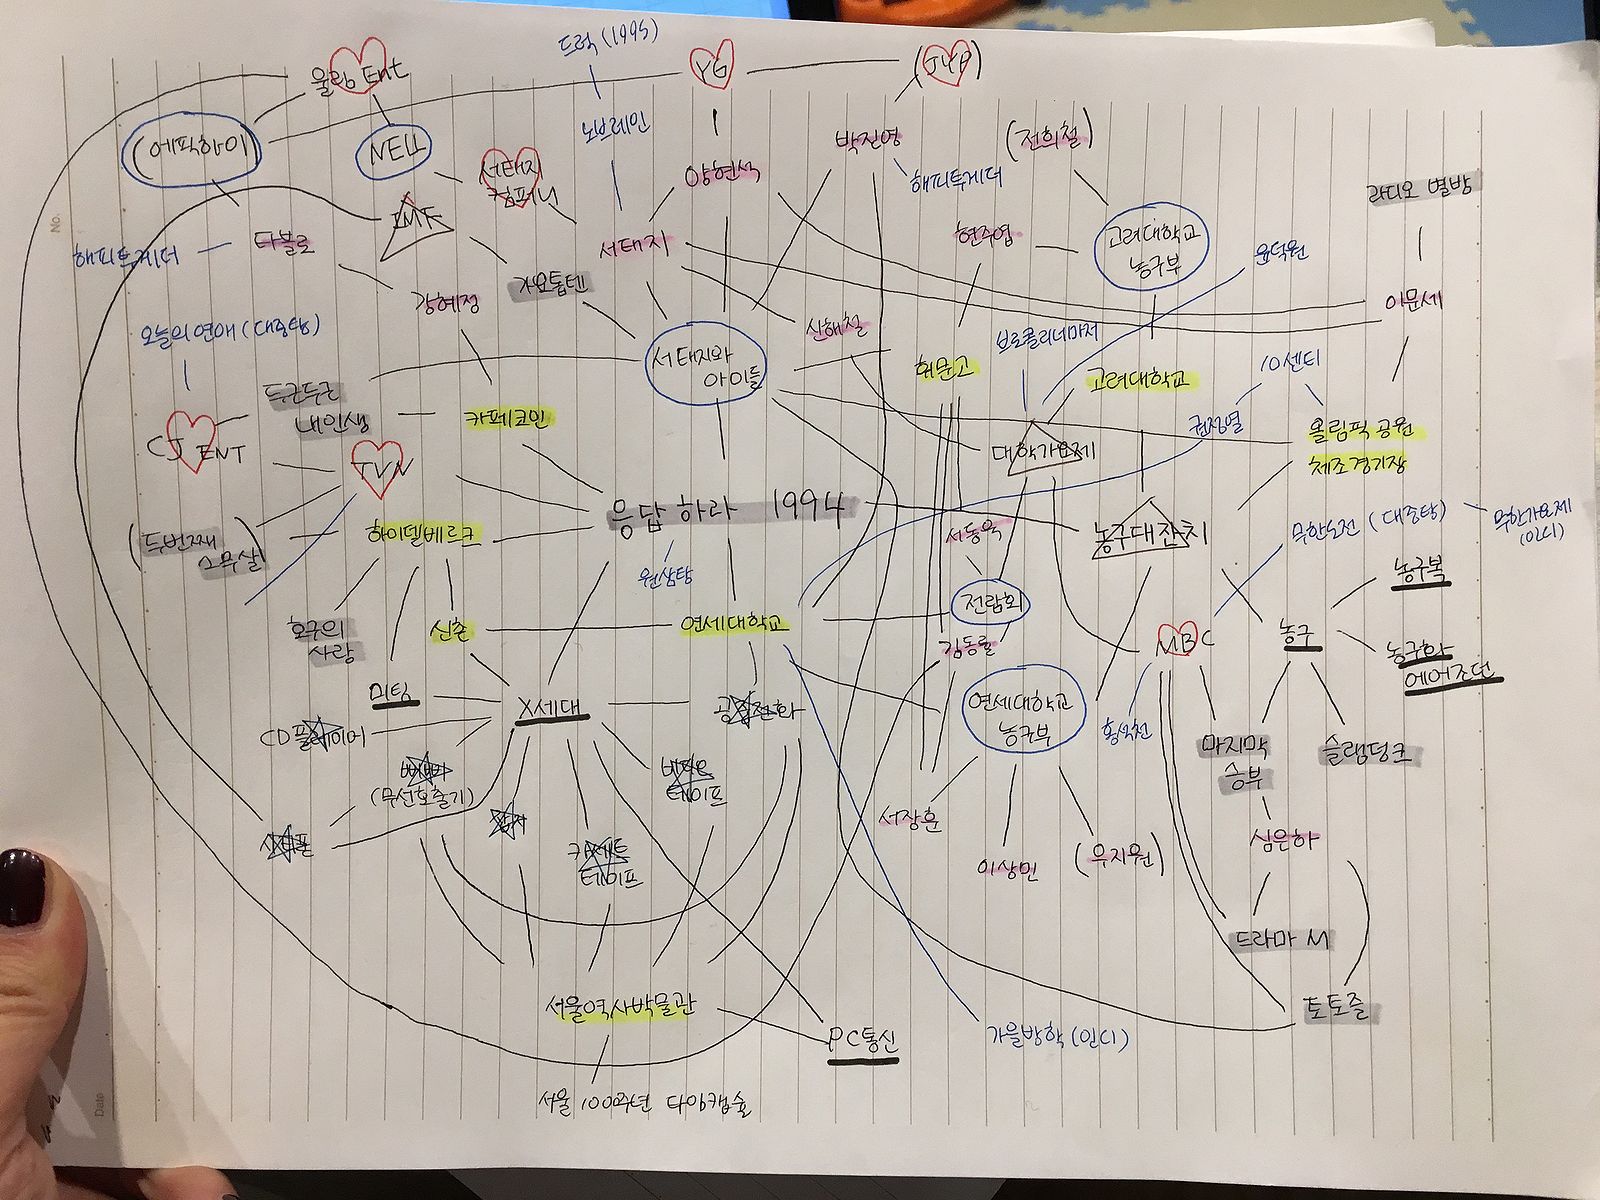 드럭 (1995)
울림 Ent
YG
(JYP)
(에픽하이)
NELL
노브레인
박진영
(전희철)
서태지
컴퍼니
양현석
해피투게더
라디오 별밤
IMF
해피투게더
타블로
서태지
현주엽
고려대학교
농구부
윤덕원
가요톱텐
강혜정
이문세
오늘의 연애 (대중탕)
신해철
브로콜리너마저
서태지와
아이들
휘문고
고려대학교
10센티
두근두근
내인생
카페코인
권정열
올림픽 공원
체조경기장
CJ ENT
TVN
대학가요제
응답하라 1994
서동욱
농구대잔치
무한도전 (대중탕)
무한가요제
(인디)
(두번째
스무살)
하이델베르크
원삼탕
농구복
전람회
호구의
사랑
신촌
연세대학교
김동률
MBC
농구
농구화
에어조던
미팅
X세대
공중전화
연세대학교
농구부
CD플레이어
홍삭천
마지막
승부
슬램덩크
삐삐
(무선호출기)
비디오
테이프
서장훈
심은하
시티폰
카세트
테이프
이상민
(우지원)
드라마 M
서울역사박물관
토토즐
PC통신
가을방학 (인디)
서울 1000주년 타임캡슐
No.
Date